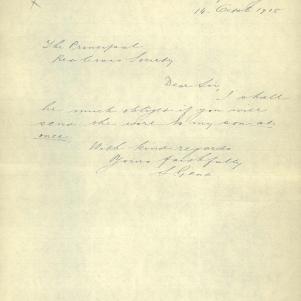 14 Sept 1915
The Principal
Red Cross Society
Dear Sir,
I shall
be much obliged if you will
send the wire to my son at
once.
With kind regards
Yours faithfully